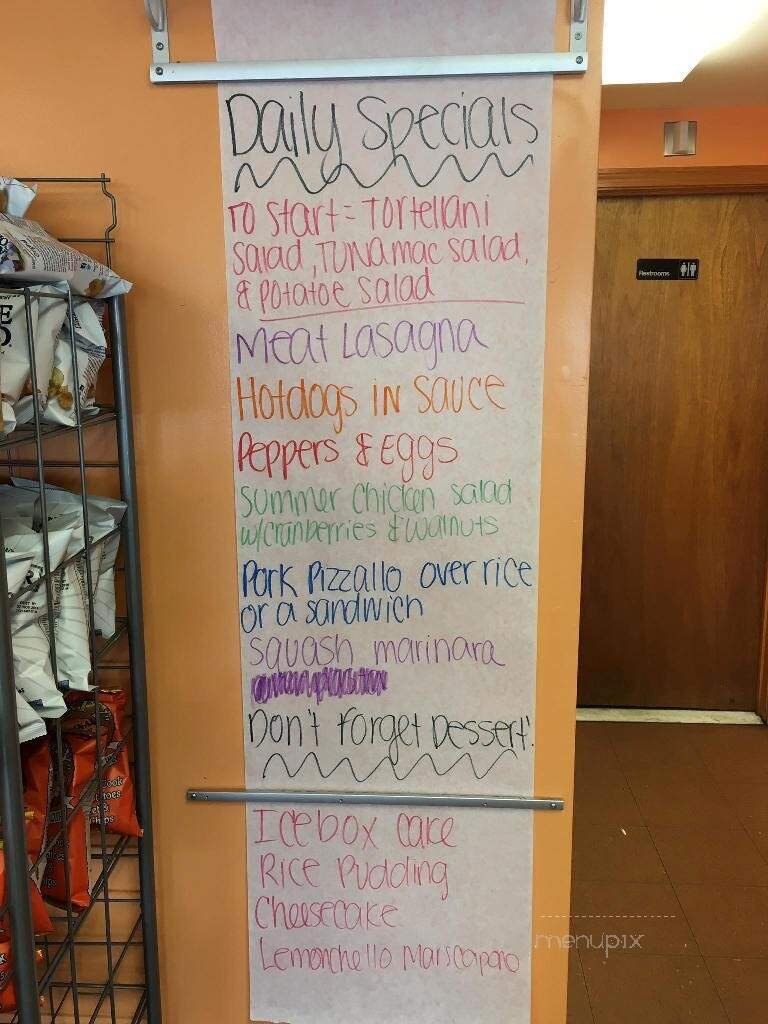 Daily Specials
To Start = Tortellani
Salad, Tuna mac Salad,
& Potatoe Salad
Meat Lasagna
Hotdogs in Sauce
Peppers & Eggs
Summer Chicken Salad
w/cranberries & walnuts
Pork Pizzallo over rice
or a sandwich
Squash marinara
Don't Forget Dessert!
Icebox Cake
Rice Pudding
Cheesecake
Lemonchello Marscapono
Restrooms
menupix